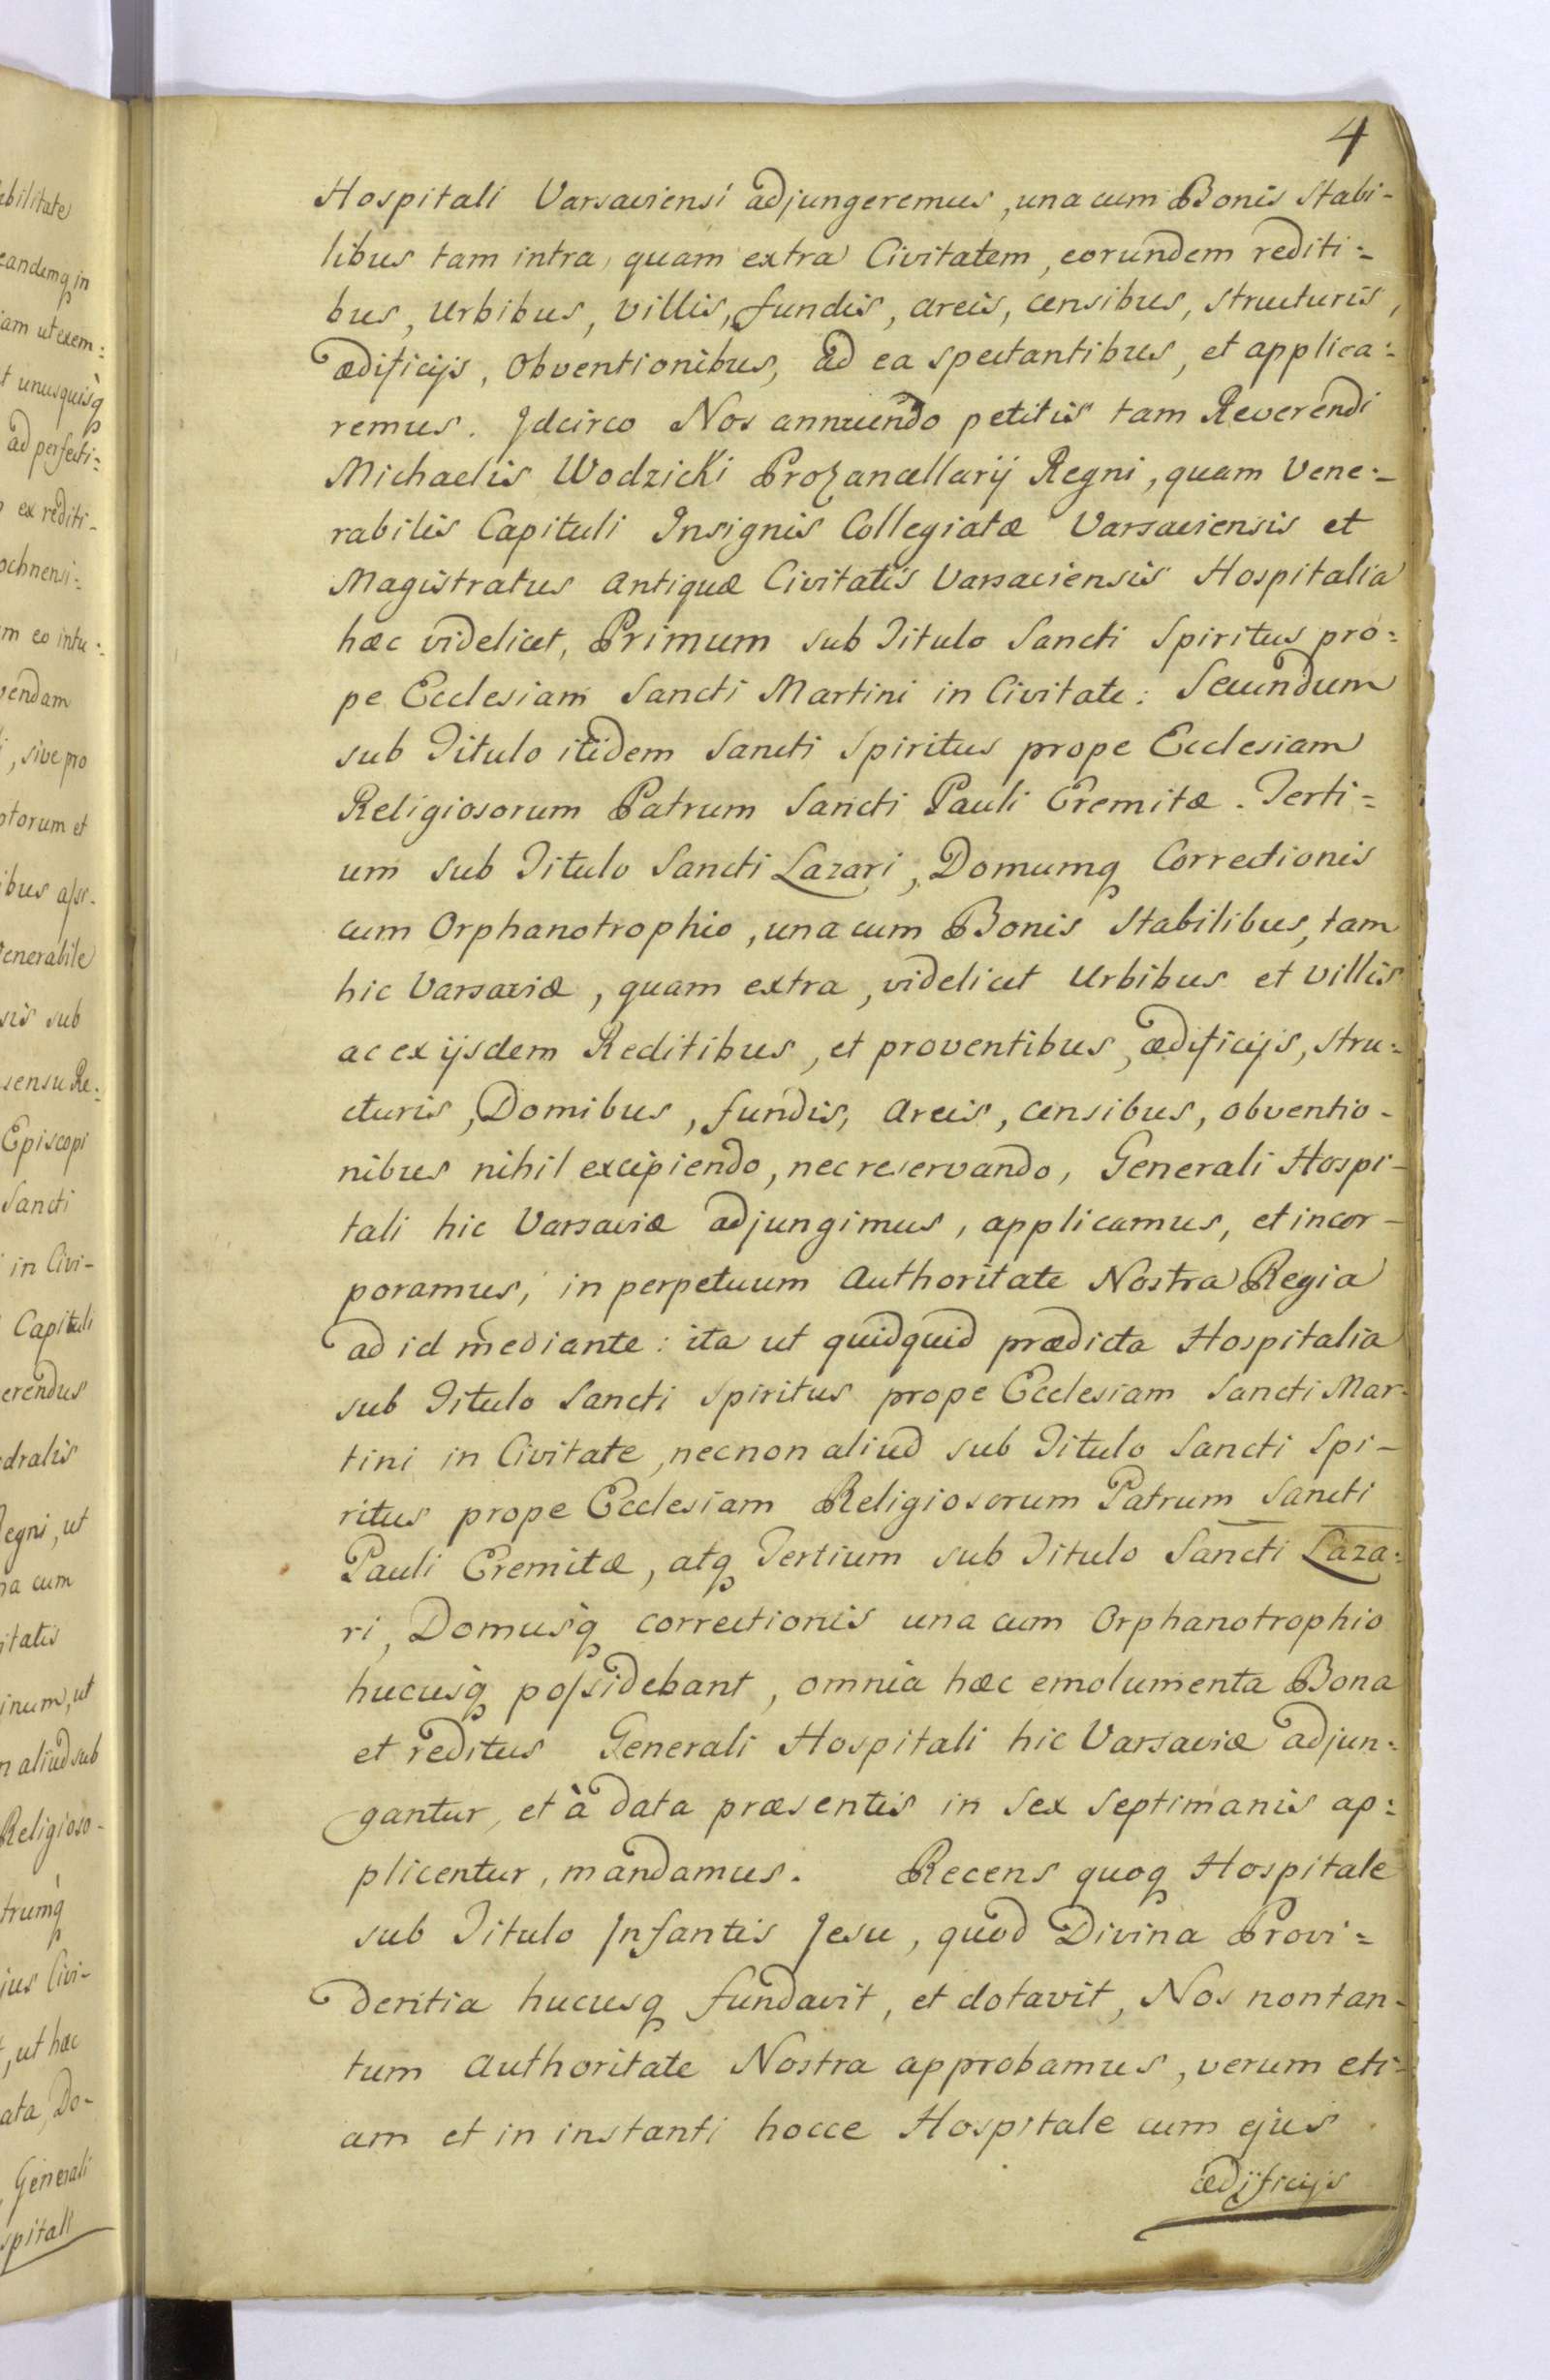 4
Hospitali Varsaviensi adjungeremus, una cum Bonis Stabi-
libus tam intra, quam extra Civitatem, eorundem rediti:
bus, Urbibus, Villis, fundis, areis, censibus, structuris,
ædificijs, obventionibus, ad ea spectantibus, et applica:
remus. Idcirco Nos annuendo petitis tam Reverendi
Michaelis Wodzicki Prozancellarij Regni, quam Vene:
rabilis Capituli Insignis Collegiatæ Varsaviensis et
Magistratus Antiquæ Civitatis Varsaviensis Hospitalia
hæc videlicet, Primum sub Titulo Sancti Spiritus pro:
pe Ecclesiam Sancti Martini in Civitate: Secundum
sub Titulo itidem Sancti Spiritus prope Ecclesiam
Religiosorum Patrum Sancti Pauli Eremitæ. Terti=
um sub Titulo Sancti Lazari, Domumq Correctionis
cum Orphanotrophio, una cum Bonis Stabilibus, tam
hic Varsaviæ, quam extra, videlicet Urbibus et Villis
ac ex ijsdem Reditibus, et proventibus, ædificijs, stru:
cturis, Domibus, fundis, areis, censibus, obventio-
nibus nihil excipiendo, nec reservando, Generali Hospi-
tali hic Varsaviæ adjungimus, applicamus, et incor-
poramus, in perpetuum Authoritate Nostra Regia
ad id mediante: ita ut quidquid prædicta Hospitalia
sub Titulo Sancti Spiritus prope Ecclesiam Sancti Mar-
tini in Civitate, necnon aliud sub Titulo Sancti Spi-
ritus prope Ecclesiam Religiosorum Patrum Sancti
Pauli Eremitæ, atq Tertium sub Titulo Sancti Laza:
ri, Domusq correctionis una cum Orphanotrophio
hucusq possidebant, omnia hæc emolumenta Bona
et reditus Generali Hospitali hic Varsaviæ adjun:
gantur, et à data præsentis in Sex Septimanis ap:
plicentur, mandamus. Recens quoq Hospitale
sub Titulo Infantis Jesu, quod Divina Provi=
dentia hucusq fundavit, et dotavit, Nos non tan-
tum Authoritate Nostra approbamus, verum eti-
am et in instanti hocce Hospitale cum ejus
ædificijs